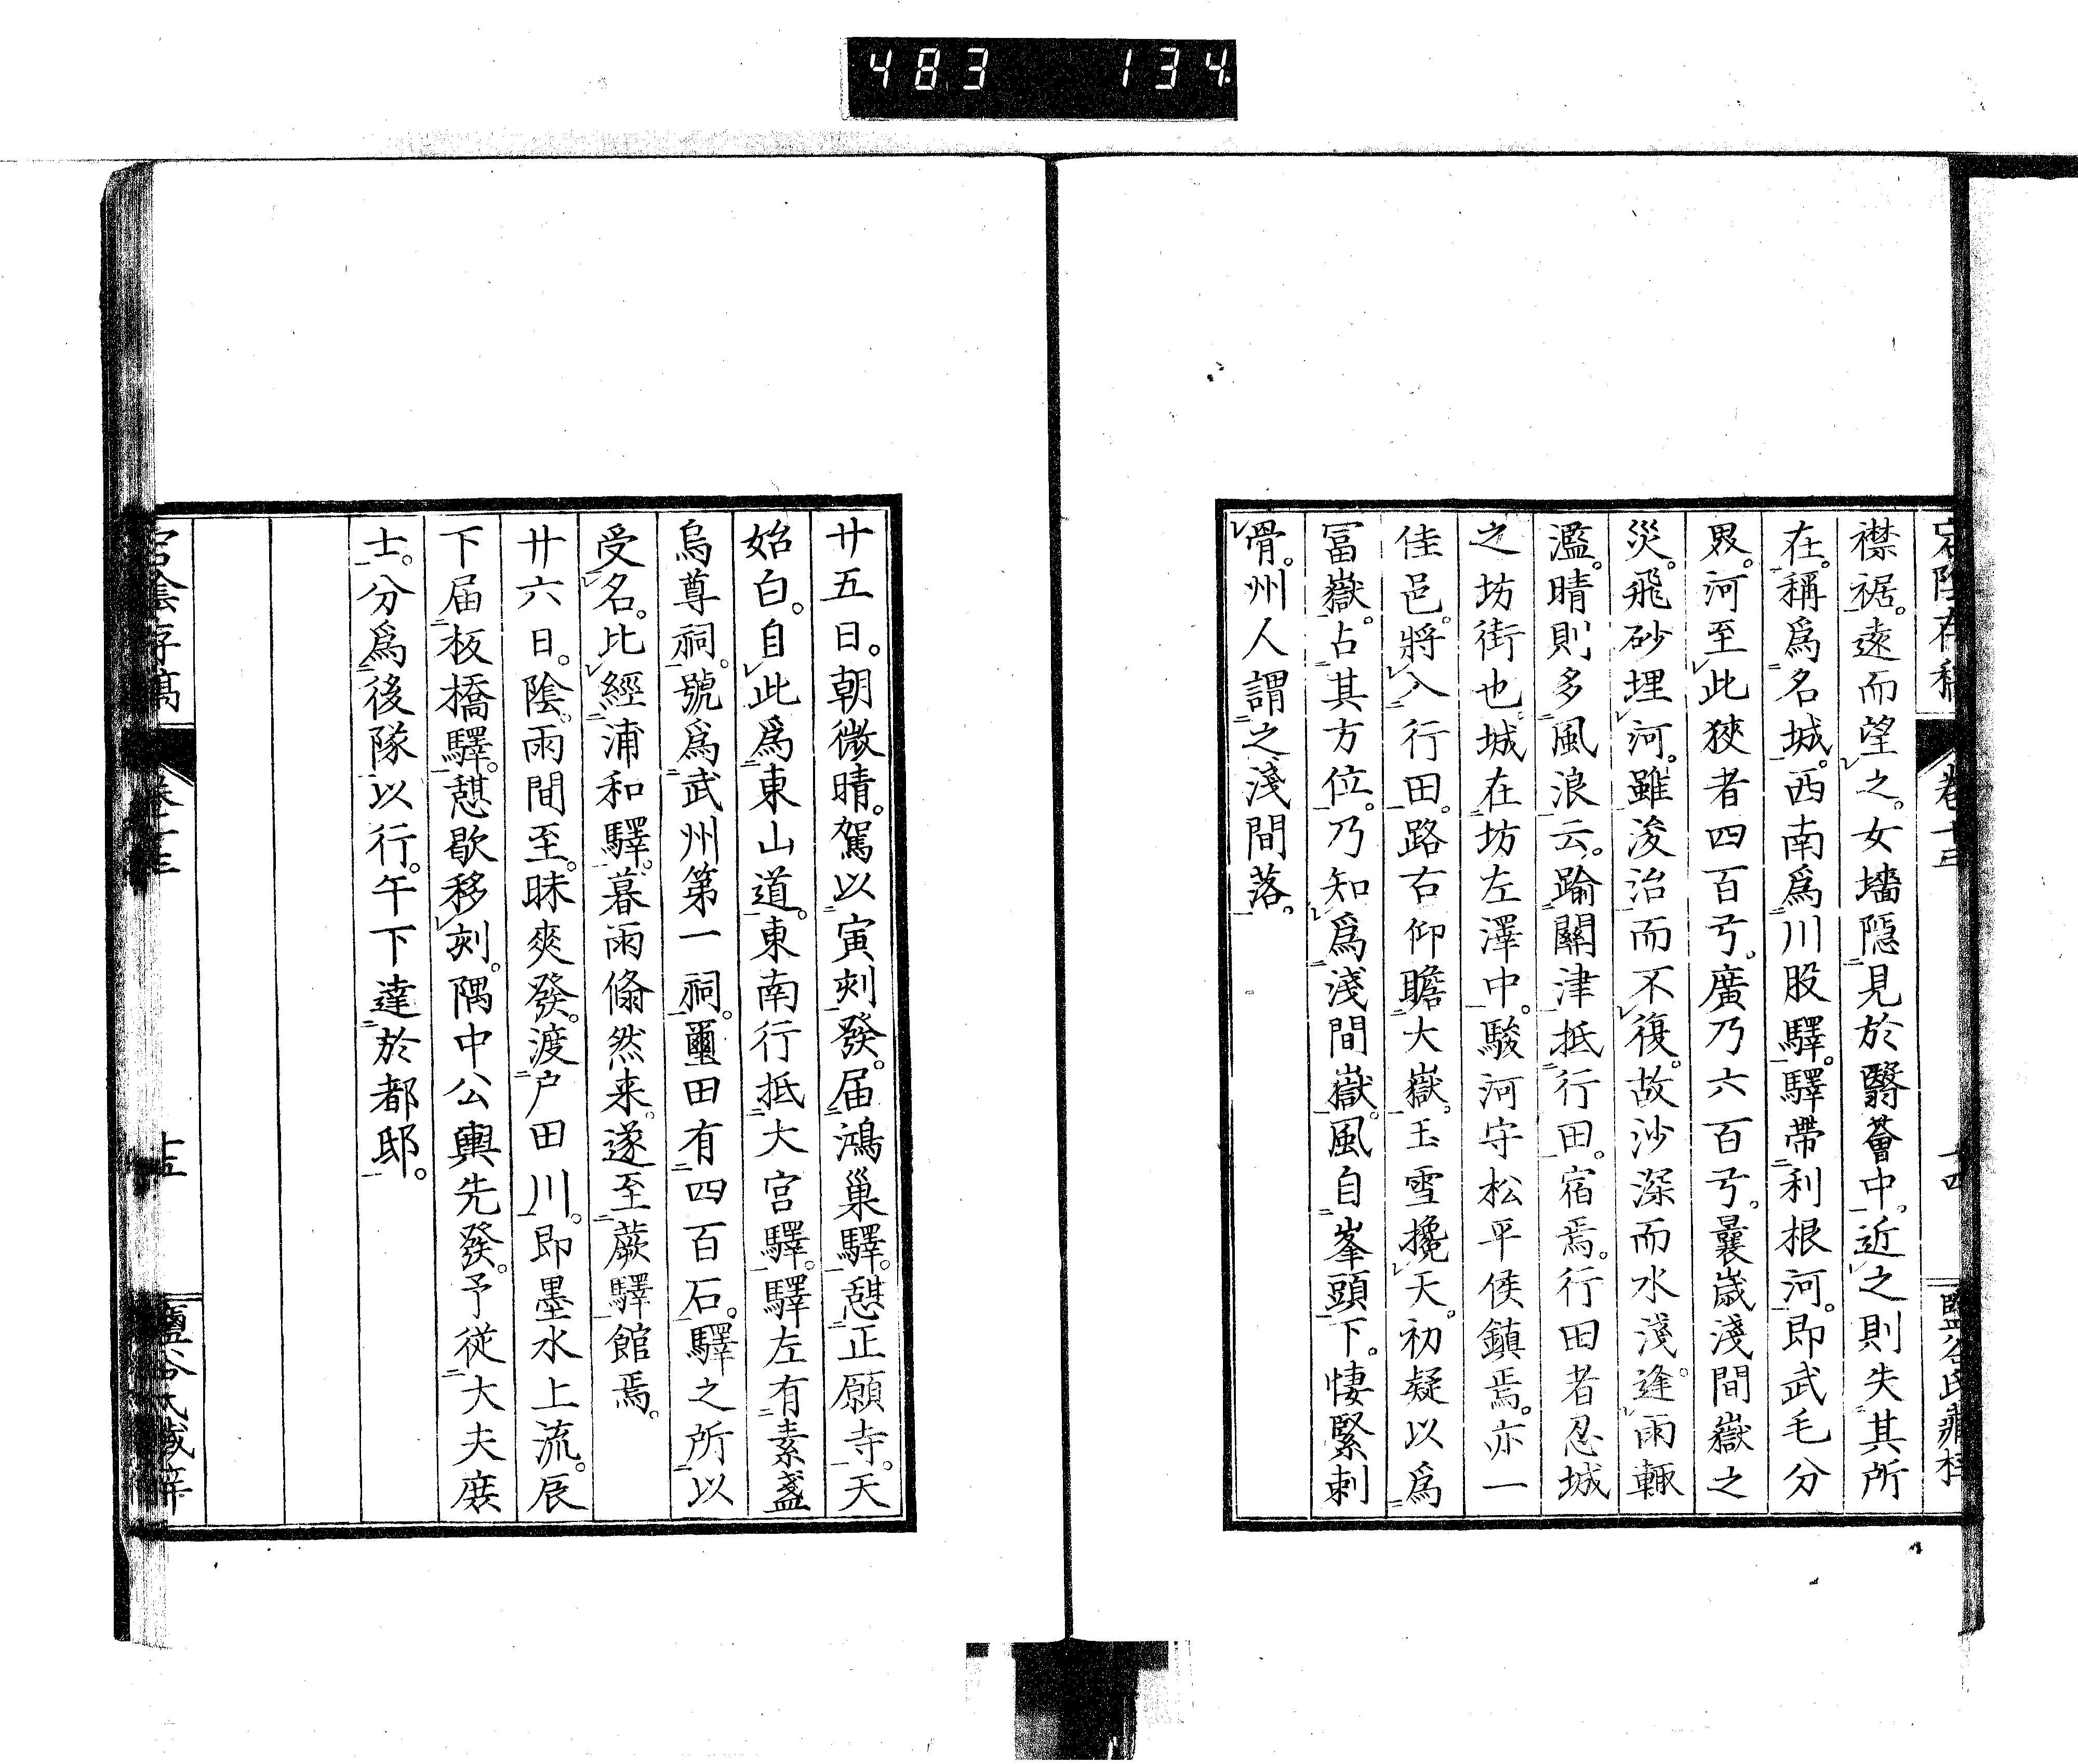 483 134
宕陰存稿 卷十三 十四 鹽谷氏藏梓
襟裾。遠而望之。女墻隱見於翳薈中。近之則失其所
在。稱爲名城。西南爲川股驛。驛帶利根河。即武毛分
界。河至此狹者四百弓。廣乃六百弓。曩歲淺間嶽之
災。飛砂埋河。雖浚治而不復。故沙深而水淺。逢雨輒
濫。晴則多風浪云。踰關津抵行田。宿焉。行田者忍城
之坊街也。城在坊左澤中。駿河守松平侯鎮焉。亦一
佳邑。將入行田。路右仰瞻大嶽。玉雪攙天。初疑以爲
冨嶽。占其方位。乃知爲淺間嶽。風自峯頭下。悽緊刺
骨。州人謂之淺間落。
廿五日。朝微晴。駕以寅刻發。届鴻巢驛。憇正願寺。天
始白。自此爲東山道。東南行抵大宮驛。驛左有素盞
烏尊祠。號爲武州第一祠。璽田有四百石。驛之所以
受名。比經浦和驛。暮雨翛然来。遂至蕨驛館焉。
廿六日。陰。雨間至。昧爽發。渡户田川。即墨水上流。辰
下届板橋驛。憇歇移刻。隅中公輿先發。予從大夫庻
士。分爲後隊以行。午下達於都邸。
宕陰存稿 卷十三 十五 鹽谷氏藏梓